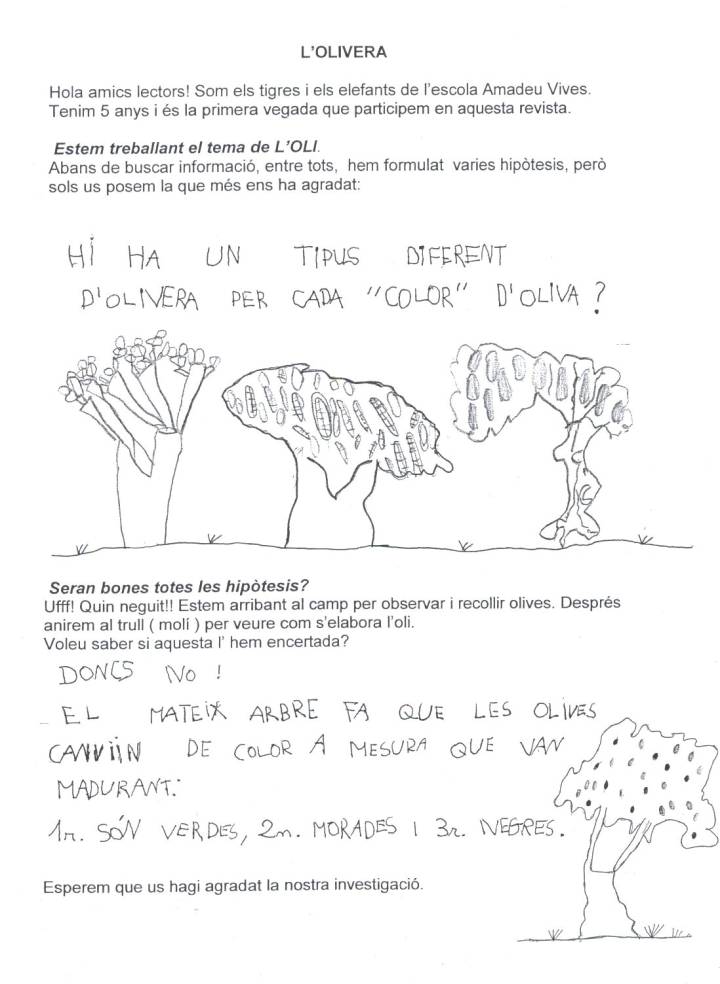 L'OLIVERA
Hola amics lectors! Som els tigres i els elefants de l'escola Amadeu Vives.
Tenim 5 anys i és la primera vegada que participem en aquesta revista.
Estem treballant el tema de L'OLI.
Abans de buscar informació, entre tots, hem formulat varies hipòtesis, però
sols us posem la que més ens ha agradat:
HI HA UN TIPUS DIFERENT
D'OLIVERA PER CADA "COLOR" D'OLIVA ?
Seran bones totes les hipòtesis?
Ufff! Quin neguit!! Estem arribant al camp per observar i recollir olives. Després
anirem al trull ( molí ) per veure com s'elabora l'oli.
Voleu saber si aquesta l' hem encertada?
DONCS NO !
EL MATEIX ARBRE FA QUE LES OLIVES
CANVIÏN DE COLOR A MESURA QUE VAN
MADURANT:
1r. SÓN VERDES, 2n. MORADES I 3r. NEGRES.
Esperem que us hagi agradat la nostra investigació.